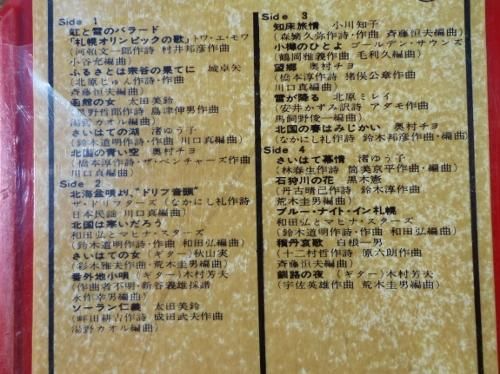 Side 1
虹と雪のバラード
「札幌オリンピックの歌」トワ・エ・モワ
(河邨文一郎作詩 村井邦彦作曲
小谷充編曲)
ふるさとは宗谷の果てに 城卓矢
(北原じゅん作詩・作曲
斉藤恒夫編曲)
函館の女 太田美鈴
(星野哲郎作詩 島津伸男作曲
湯野カオル編曲)
さいはての湖 渚ゆう子
(鈴木道明作詩・作曲 川口真編曲)
北国の青い空 奥村チヨ
(橋本淳作詩・ザ・ベンチャーズ作曲
川口真編曲)
Side 2
北海盆唄より、"ドリフ音頭"
ザ・ドリフターズ (なかにし礼作詩
日本民謡 川口真編曲)
北国は寒いだろう
和田弘とマヒナ・スターズ
(鈴木道明作詩・作曲 和田弘編曲)
さいはての女 (ギター)秋山実
(彩木雅夫作曲・荒木圭男編曲)
番外地小唄 (ギター)木村芳夫
(作曲者不明・新谷義雄採譜
水作幸男編曲)
ソーラン仁義 太田美鈴
(畔田耕古作詩 成田武夫作曲
湯野カオル編曲)
Side 3
知床旅情 小川知子
(森繁久弥作詩・作曲 斉藤恒夫編曲)
小樽のひとよ ゴールデン・サウンズ
(鶴岡雅義作曲 毛利久編曲)
望郷 奥村チヨ
(橋本淳作詩 猪俣公章作曲
川口真編曲)
雪が降る 北原ミレイ
(安井かずみ訳詩 アダモ作曲
馬飼野俊一編曲)
北国の春はみじかい 奥村チヨ
(なかにし礼作詩 鈴木邦彦作曲・編曲)
Side 4
さいはて慕情 渚ゆう子
(林春生作詩 筒美京平作曲・編曲)
石狩川の花 黒木憲
(丹古晴己作詩 鈴木淳作曲
荒木圭男編曲)
ブルー・ナイト・イン札幌
和田弘とマヒナ・スターズ
(鈴木道明作詩・作曲 和田弘編曲)
積丹哀歌 白根一男
(十二村哲作詩 原六朗作曲
斉藤恒夫編曲)
釧路の夜 (ギター)木村芳夫
(宇佐英雄作曲 荒木圭男編曲)